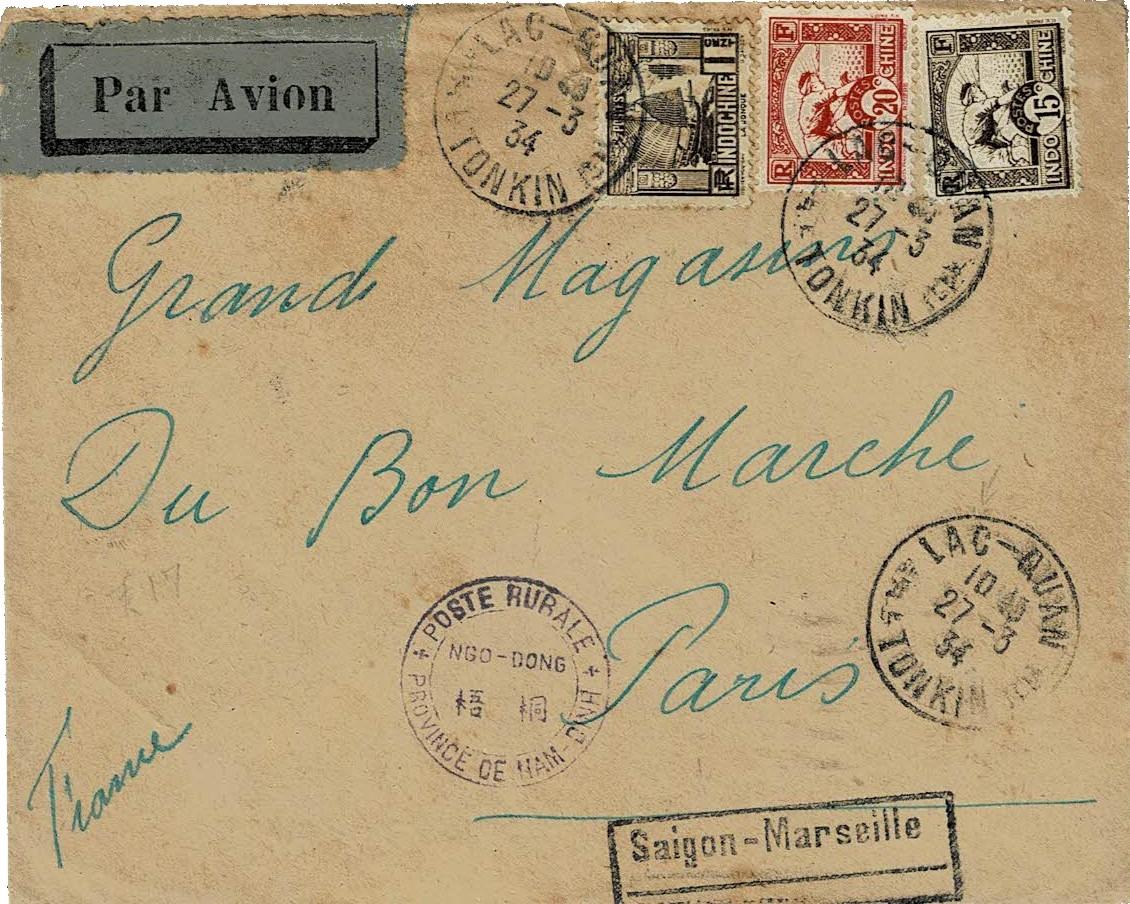 Par Avion
LAC-QUAN
10 40
27-3
34
TONKIN
1/10
INDOCHINE
LA JONQUE
RF
POSTES
20c
INDOCHINE
RF
POSTES
15c
INDOCHINE
RF
27-3
34
TONKIN
Grand Magasins
Du Bon Marche
Paris
France
£17
POSTE RURALE
NGO-DONG
梧桐
PROVINCE DE NAM-DINH
LAC-QUAN
10 40
27-3
34
TONKIN
Saigon-Marseille